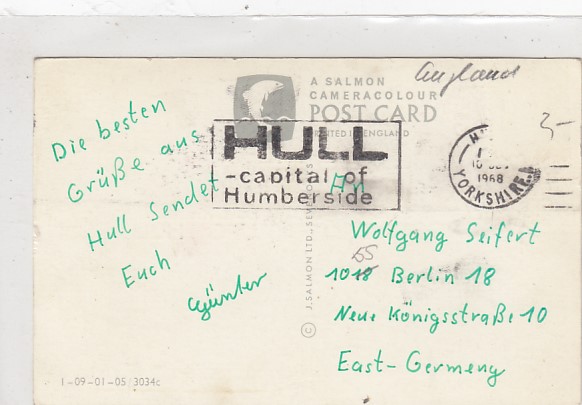 England
A SALMON
CAMERACOLOUR
POST CARD
PRINTED IN ENGLAND
3-
HULL
-capital of
Humberside
1968
YORKSHIRE
Die besten
Grüße aus
Hull Sendet
Euch
Günter
An
Wolfgang Seifert
55
1018 Berlin 18
Neue Königsstraße 10
East-Germeny
© J. SALMON LTD., SEVENOAKS
1-09-01-05/3034c